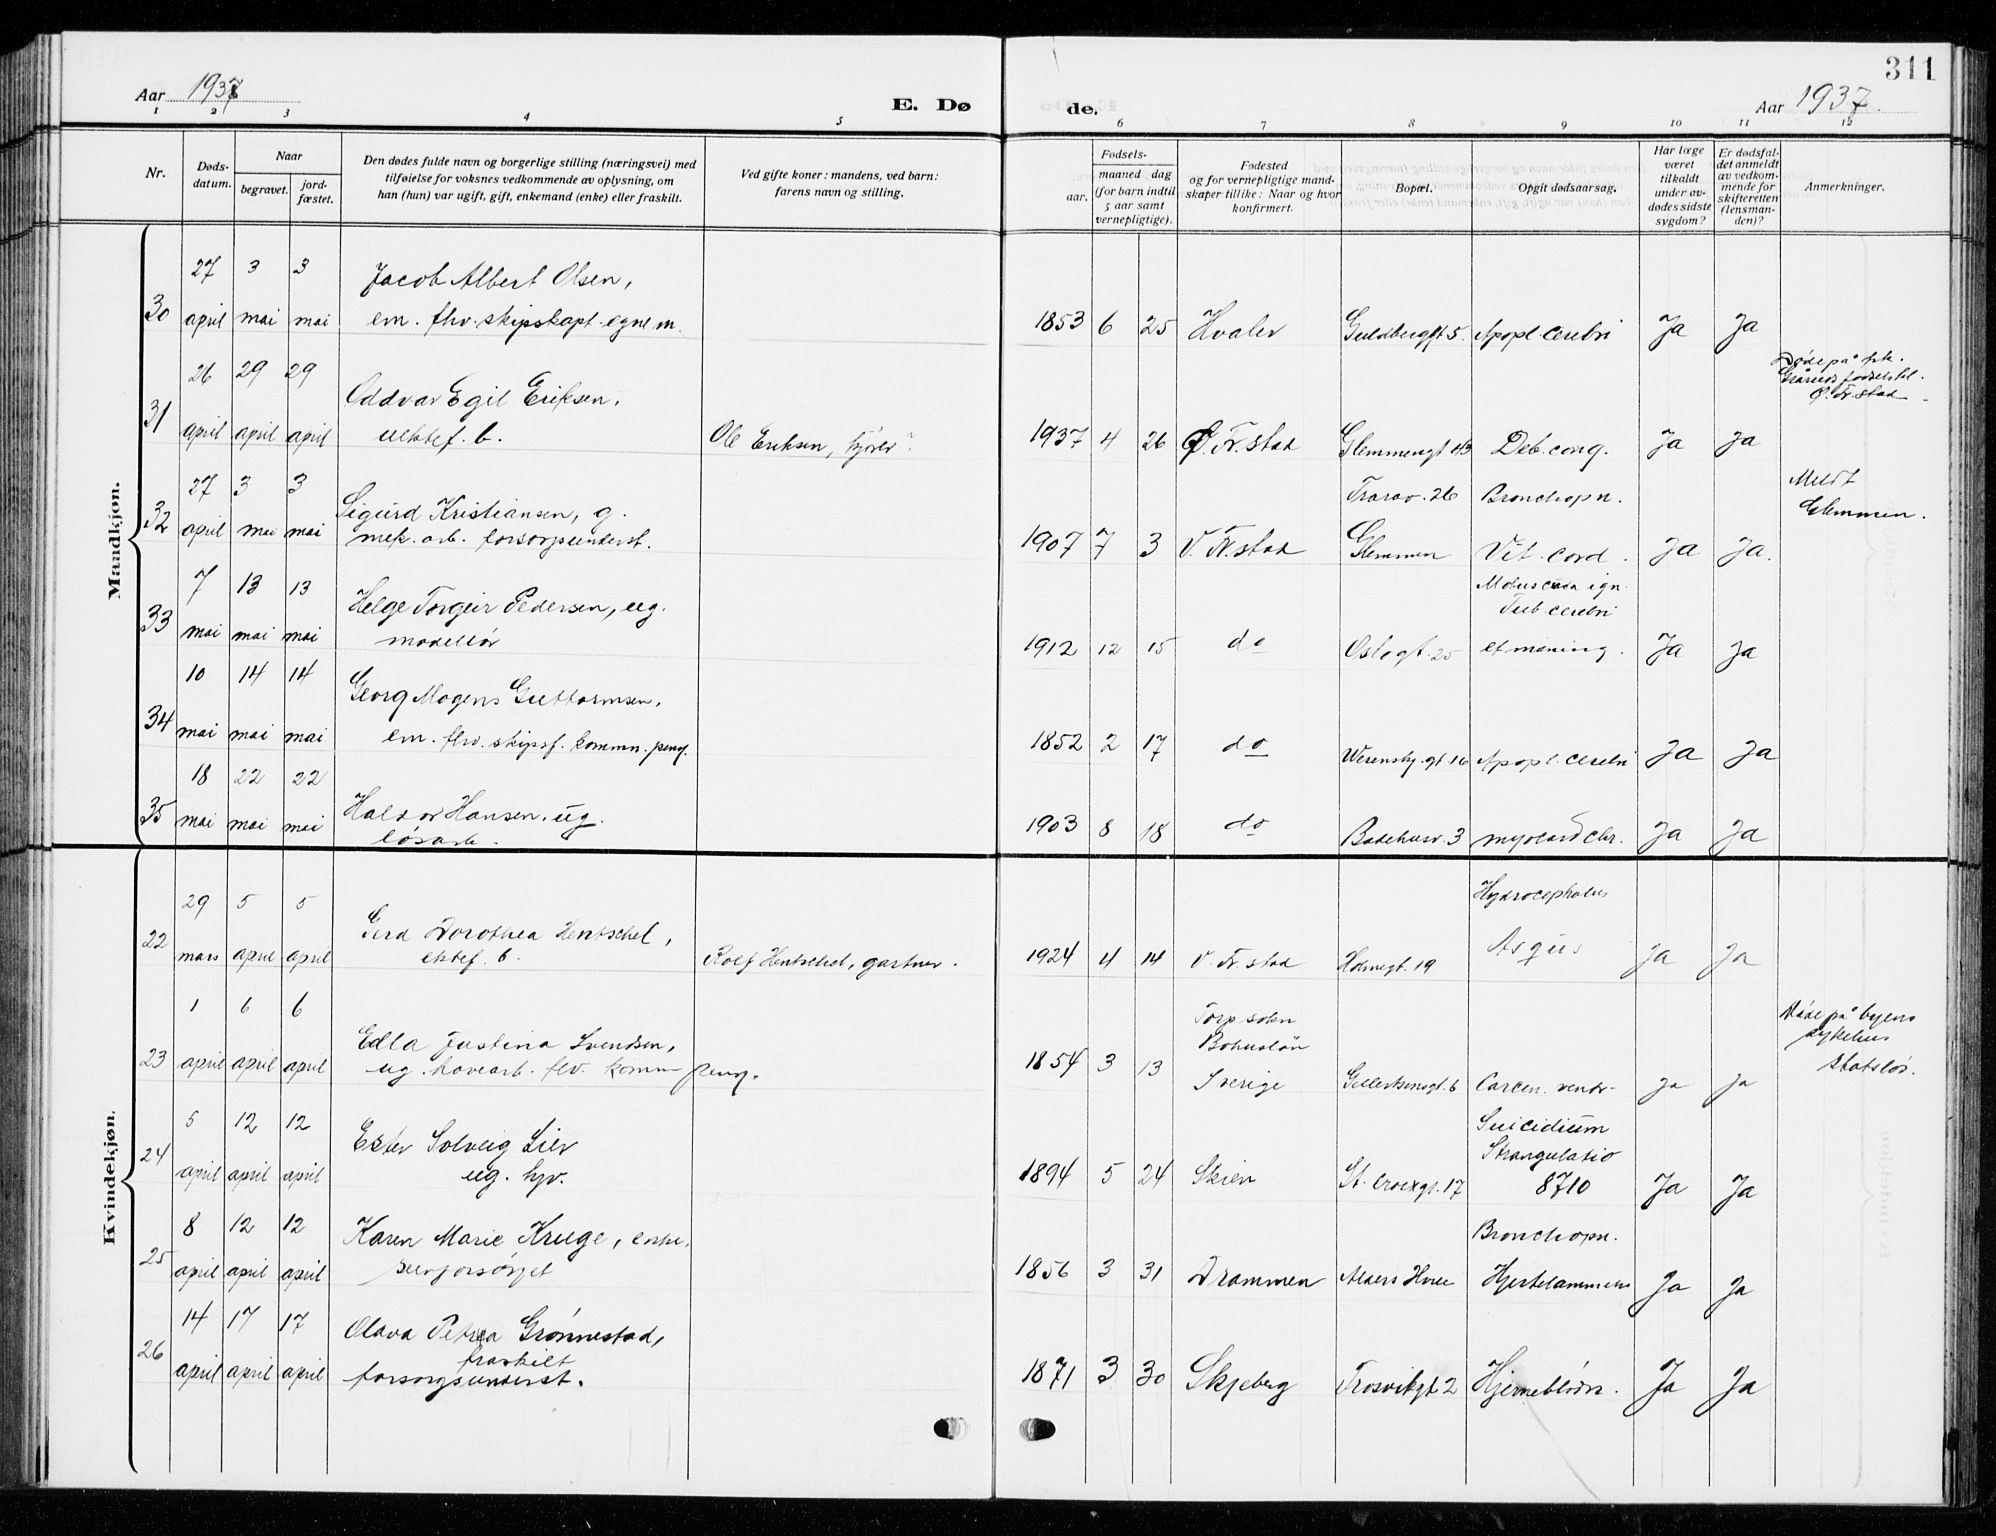 311
Aar 1937
E. Dø
de.
Aar 1937.
1 2 3 4 5 6 7 8 9 10 11 12
Nr.
Døds-
datum.
Naar
begravet.
jord-
fæstet.
Den dødes fulde navn og borgerlige stilling (næringsvei) med
tilføielse for voksnes vedkommende av oplysning, om
han (hun) var ugift, gift, enkemand (enke) eller fraskilt.
Ved gifte koner: mandens, ved barn:
farens navn og stilling.
Fødsels-
aar.
maaned dag
(for barn indtil
5 aar samt
vernepligtige).
Fødested
og for vernepligtige mand-
skaper tillike: Naar og hvor
konfirmert.
Bopæl.
Opgit dødsaarsag.
Har læge
været
tilkaldt
under av-
dødes sidste
sygdom?
Er dødsfal-
det anmeldt
av vedkom-
mende for
skifteretten
(lensman-
den)?
Anmerkninger.
Mandkjøn.
27 3 3
Jacob Albert Olsen,
30 april mai mai em. fhv. skipskapt. egne m. 1853 6 25 Hvaler Guldbergsgt 5. Apopl. cerebri Ja Ja
26 29 29
Oddvar Egil Eriksen,
Døde på
Ø. Fr.stad
31 april april april uektef. b. Ole Eriksen, 1937 4 26 Ø. Fr.stad Glemmengt 43 Deb. cong. Ja Ja
27 3 3
Sigurd Kristiansen, g.
Trarav. 26 Bronchopn. Meldt
Glemmen.
32 april mai mai mek. arb. forsorgsunderst. 1907 7 3 V. Fr.stad Glemmen Vit. cord. Ja Ja.
7 13 13
Helge Torgeir Pedersen, ug.
Tub. cerebri
33 mai mai mai modellør 1912 12 15 do Oslogt. 25 et mening. Ja Ja
10 14 14
Georg Mogens Guttormsen,
34 mai mai mai em. fhv. skipsf. kommn. peng. 1852 2 17 do Werensk. gt. 16 Apopl. cerebri Ja Ja
18 22 22
35 mai mai mai Haldor Hansen, ug.
løsarb. 1903 8 18 do Badehusv. 3 myocard chr. Ja Ja
Kvindekjøn.
29 5 5
Gerd Dorothea Hentschel,
Hydrocephalus
22 mars april april ektef. b. Rolf Hentschel, gartner. 1924 4 14 V. Fr.stad Holmegt. 19 Ja Ja
1 6 6
Edla Justina Svendsen,
Torp sokn
Bohuslän
Døde på byens
sykehus
statsløs.
23 april april april ug. havearb. fhv. komm peng. 1854 3 13 Sverige Gullerksensgt. 6 Carcen. ventr. Ja Ja
5 12 12
Ester Solveig Lier
Suicidium
Strangulatio
24 april april april ug. hjv. 1894 5 24 Skien St. Croixgt. 17 8710 Ja Ja
8 12 12
Karen Marie Kruge, enke,
Bronchopn.
25 april april april selvforsørget 1856 3 31 Drammen Alders Hvile Hjertelammelse Ja Ja
14 17 17
Olava Petrea Grønnestad,
fraskilt
26 april april april forsorgsunderst. 1871 3 30 Skjeberg Trosvikgt 2 Hjerneblødn. Ja Ja